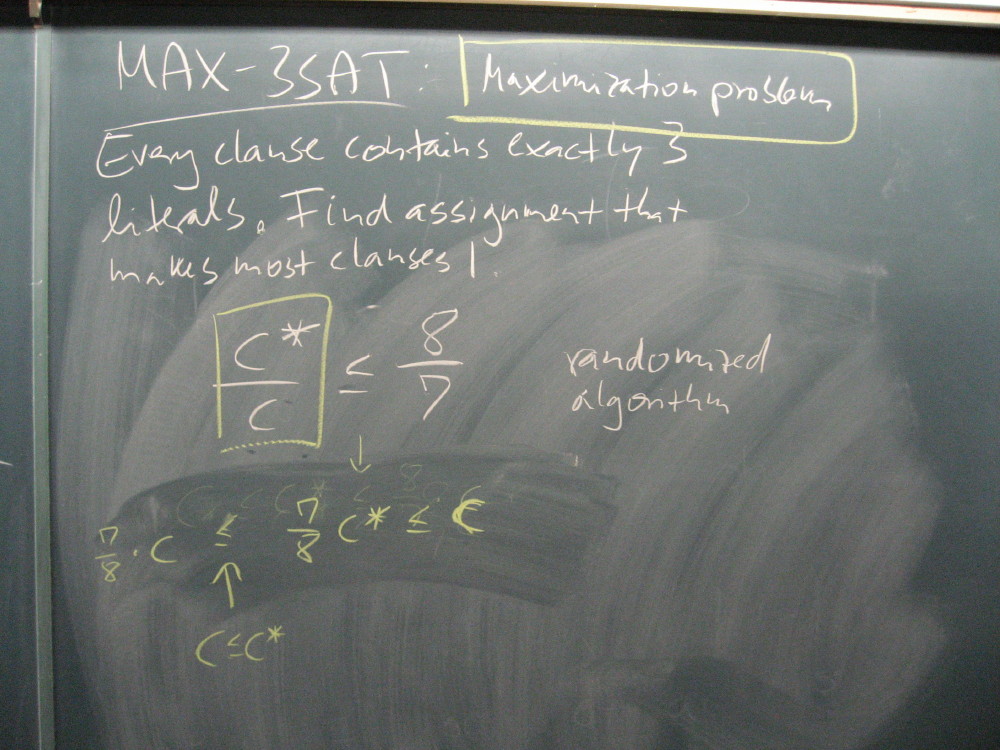 MAX-3SAT: Maximization problem
Every clause contains exactly 3
literals. Find assignment that
makes most clauses 1.
C*/C ≤ 8/7
randomized
algorithm
↓
7/8 · C ≤ 7/8 C* ≤ C
↑
C ≤ C*